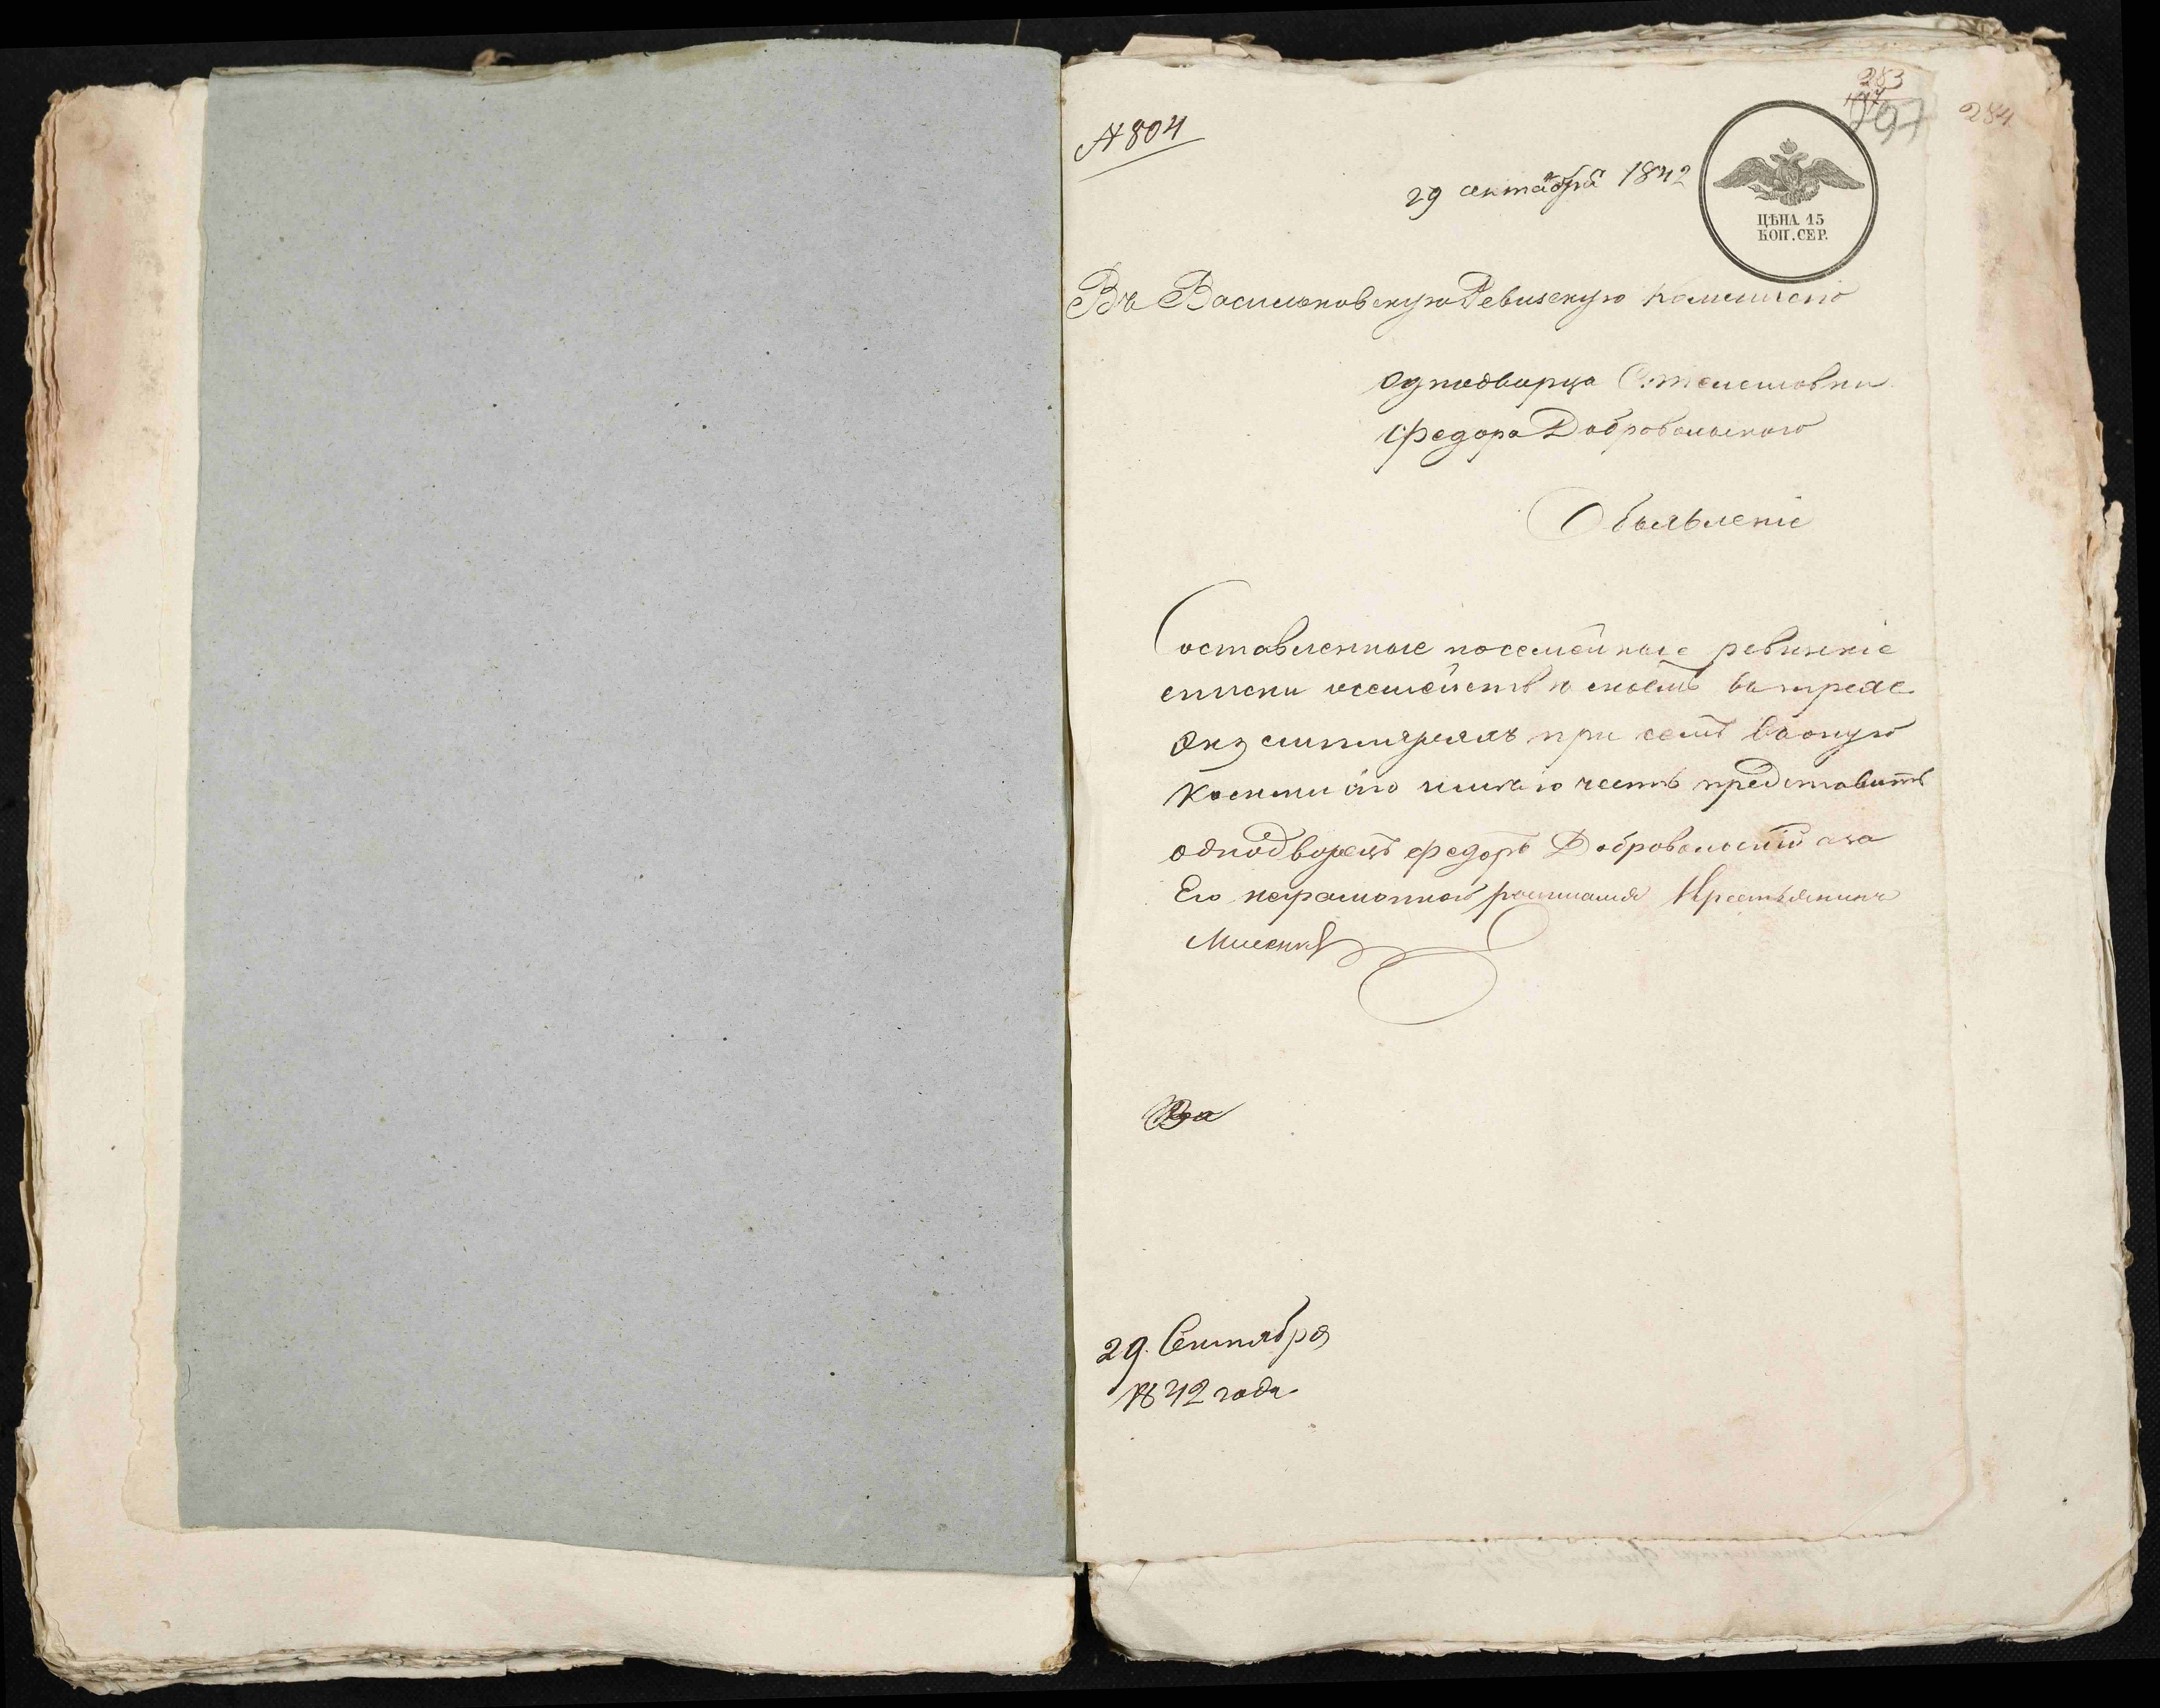 283
197
284
№ 804
29 октября 1842
ЦѢНА 15
КОП. СЕР.
Въ Васильковскую Ревизскую Коммисію
Однодворца С. Телешовки
Федора Добровольского
Объявленіе
Составленные посемейные ревизкіе
списки о семействѣ моемъ въ трехъ
Экземплярахъ при семъ въ оную
Коммисію имѣю честь представить
однодворецъ Федоръ Добровольскій а за
Его неграмотного росписался Крестьянинъ
29. Сентября
1842 года